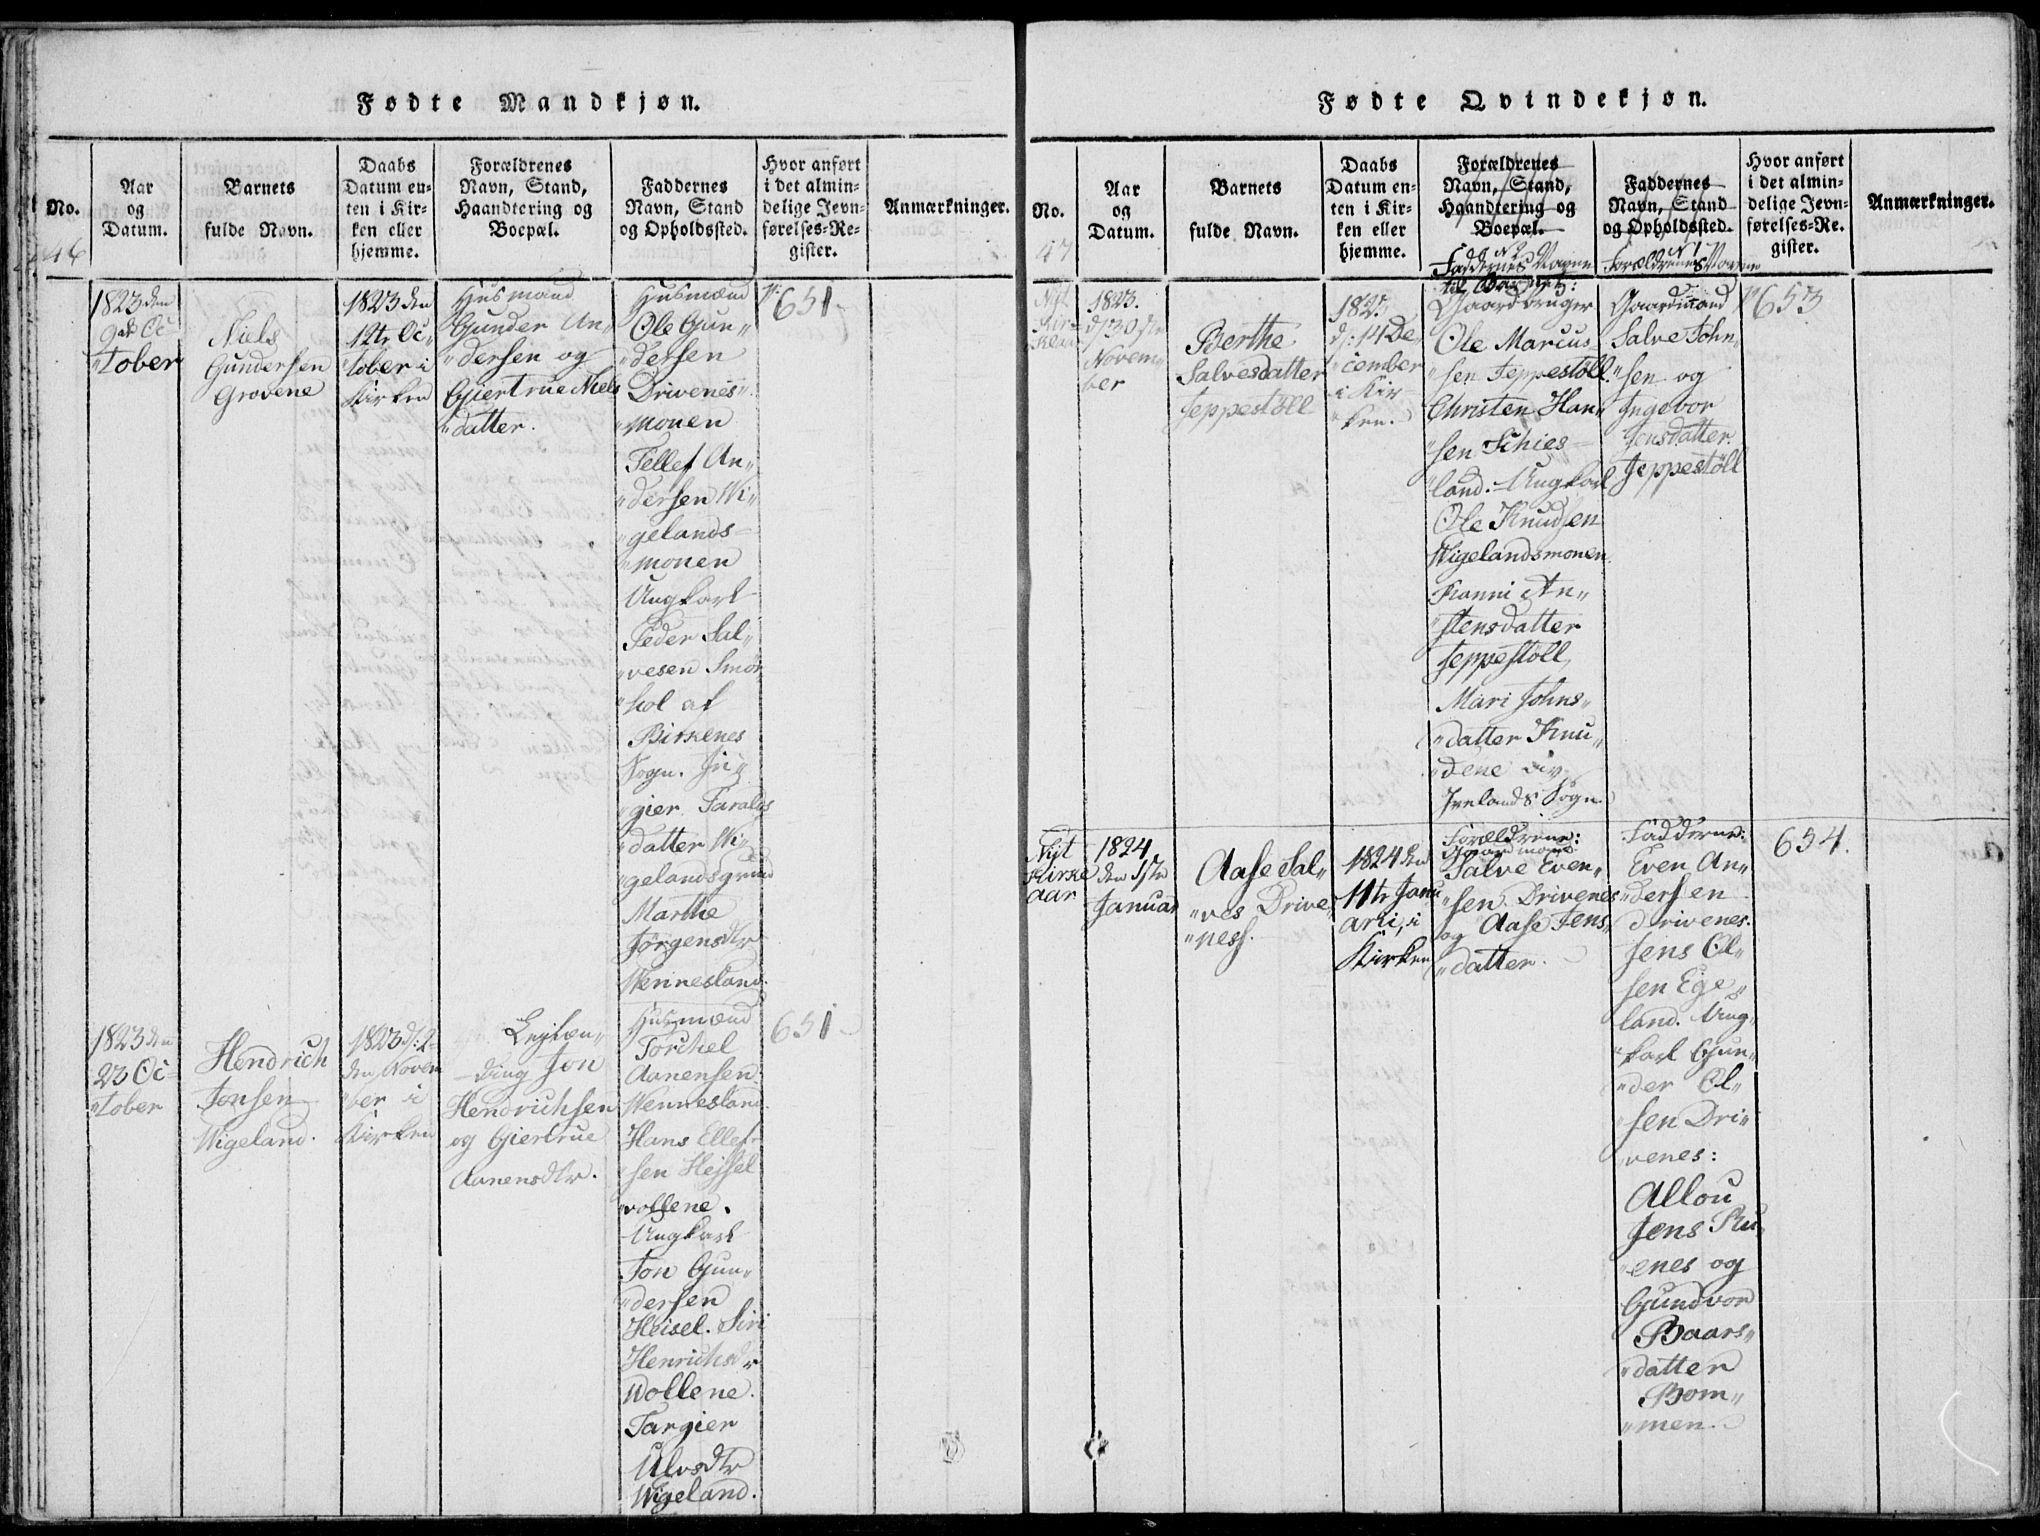 Fødte Mandkjøn.
No.
Aar
og
Datum.
Barnets
fulde Navn.
Daabs
Datum en-
ten i Kir-
ken eller
hjemme.
Forældrenes
Navn, Stand,
Haandtering og
Boepæl.
Faddernes
Navn, Stand
og Opholdssted.
Hvor anført
i det almin-
delige Jevn-
førelses-Re-
gister.
Anmærkninger.
46
1823 den
9de Oc
"tober
Niels
Gundersen
Grovene
1823 den
12te Oc"
"tober i
Kirken
Husmand
Gunder An"
"dersen og
Giertrue Niels
"datter.
Husmænd
Ole Gun"
"dersen
Drivenes"
"monen
Tellef An"
"dersen Wi"
"gelands
"monen
Ungkarl
Peder Sal"
"vesen Smør
"hol af
Birkenes
Sogn. In"
"gier Taralds
"datter Wi"
"gelandsgrund
Marthe
Jørgensdtr
Wennesland.
651
1823 den
23 Oc"
"tober
Hendrich
Jonsen
Wigeland.
1823 d: 2
den Novem
"ber i
Kirken
Lejlæn"
"ding Jon
Hendrichsen
og Giertrue
Aanensdtr.
Husmænd
Torchel
Aanensen
Wennesland.
Hans Ellef"
"sen Hejsel
"vollene.
Ungkarl
Jon Gun"
"dersen
Heisel. Siri
Henrichsdr
Wollene.
Targier
Ulvsdtr
Wigeland.
651
Fødte Qvindekjøn.
No.
Aar
og
Datum.
Barnets
fulde Navn.
Daabs
Datum en-
ten i Kir-
ken eller
hjemme.
Forældrenes
Navn, Stand,
Haandtering og
Boepæl.
Faddernes Navne
til Barnet:
Faddernes
Navn, Stand
og Opholdssted.
Forældrenes Navne
Hvor anført
i det almin-
delige Jevn-
førelses-Re-
gister.
Anmærkninger.
47
1823.
d: 30 de
Novem"
ber
Berthe
Salvesdatter
Jeppestöll
1823
d: 14 De"
"cember
i Kir
"ken.
Gaardbruger
Ole Marcus"
"sen Jeppestöll.
Christen Han"
"sen Schies"
land. Ungkarl
Ole Knudsen
Wigelandsmonen.
Kanni An"
"stensdatter
Jeppestöll,
Mari Johns"
"datter Knu"
"dene
Ivelands Sogn.
Gaardmand
Salve John"
"sen og
Ingebor
Jensdatter
Jeppestöll
653
Nyt
Kirke
aar
1824
den 1ste
Januar
Aase Sal"
"ves Drive"
"ness.
1824 den
11te Janu
arii, i
Kirken
Forældrene:
Gaardmand
Salve Even"
"sen Drivenes
og Aase Jens"
"datter.
Fadderne:
Even An"
"dersen
Drivenes.
Jens Ol"
sen Ege"
land. Ung"
"karl Gun"
"der Ol"
sen Dri"
venes:
Allou
Jens Ru"
"enes og
Gundvor
Baars"
"datter
Bom"
"men.
654.